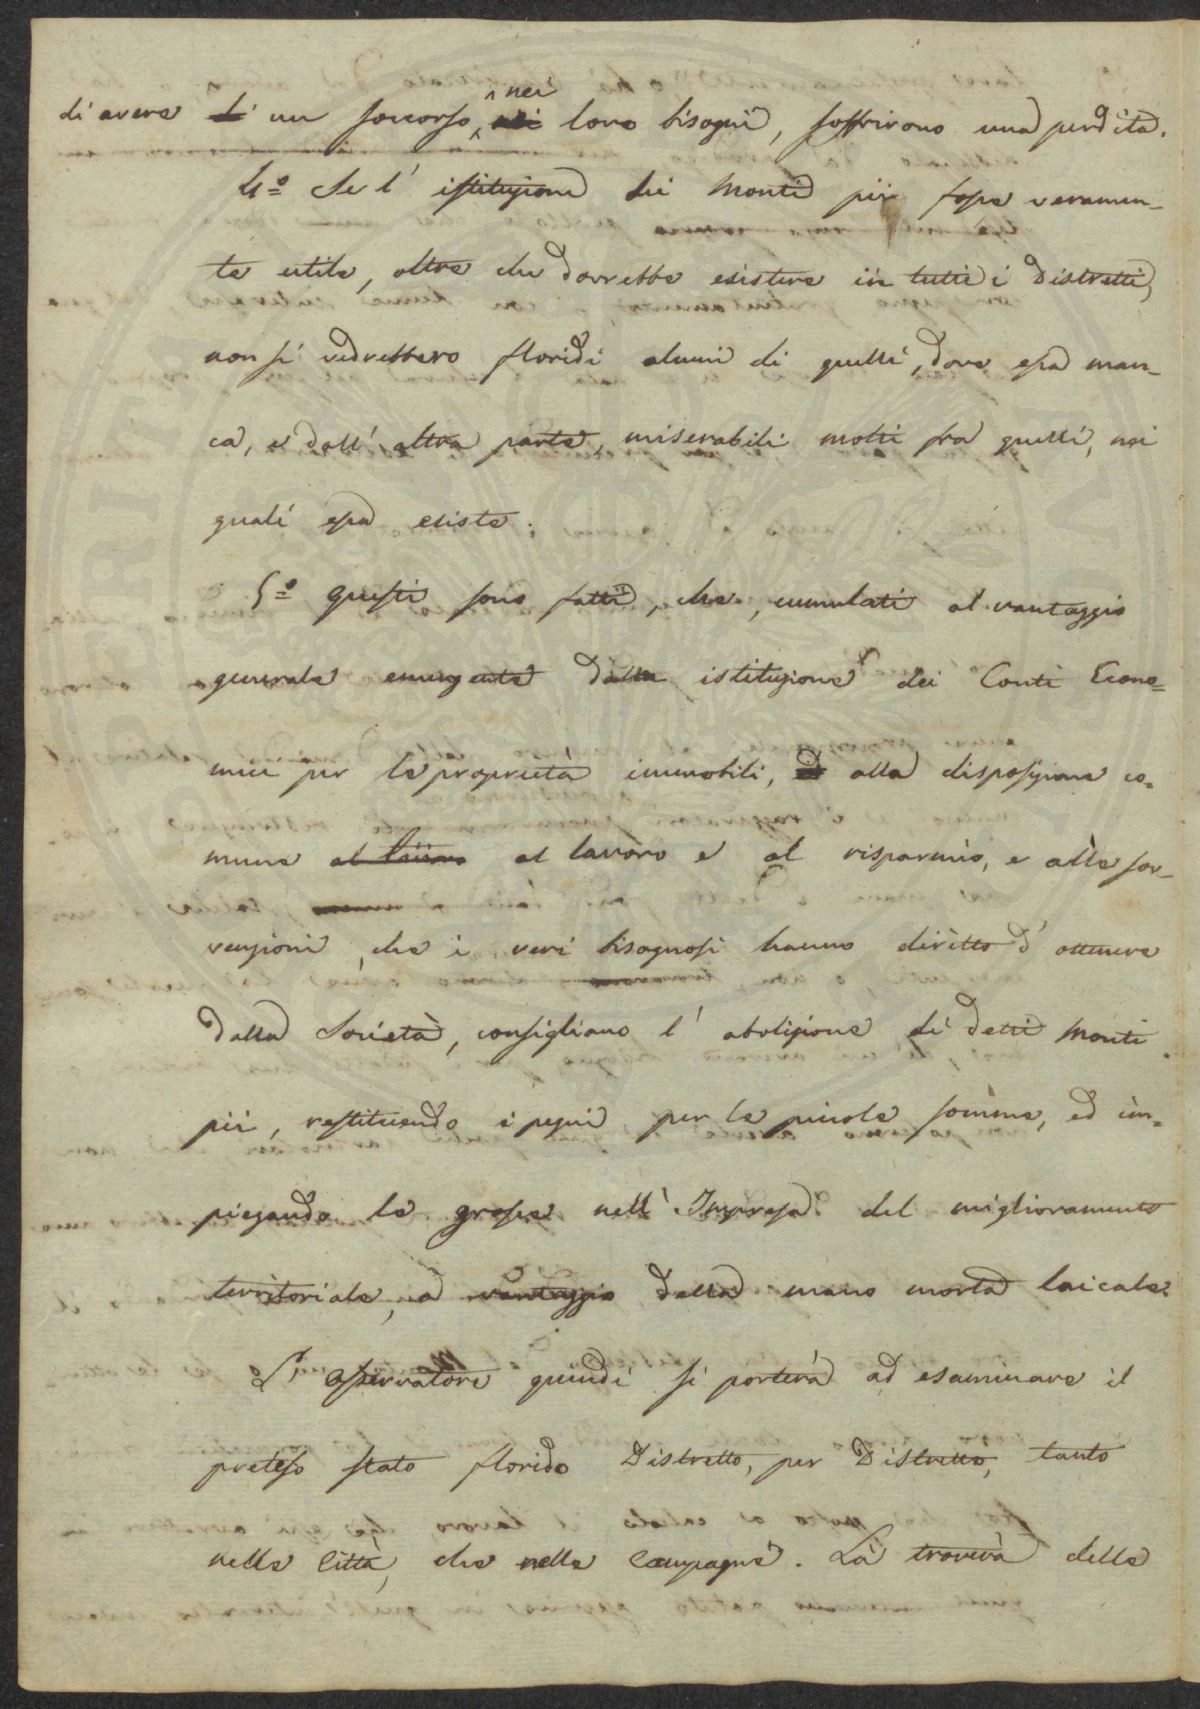 di avere un soccorso, nei loro bisogni, soffrirono una perdita.
4.º Se l'istituzione dei Monti pii fosse veramen-
te utile, oltre che dovrebbe esistere in tutti i Distretti,
non si vedrebbero floridi alcuni di quelli, dove essa man-
ca, e dall'altra parte, miserabili molti fra quelli, nei
quali essa esiste.
5.º Questi sono fatti, che, cumulati al vantaggio
generale emergente dalla istituzione dei Conti Econo=
mici per le proprietà immobili, alla disposizione co-
mune al lavoro e al risparmio, e alle sov-
venzioni, che i veri bisognosi hanno diritto d'ottenere
dalla Società, consigliano l'abolizione di detti Monti
pii, restituendo i pegni per le piccole somme, ed im-
piegando le grosse nell'Impresa del miglioramento
territoriale, a vantaggio della mano morta laicale.
L'Osservatore quindi si porterà ad esaminare il
preteso stato florido Distretto, per Distretto, tanto
nelle Città, che nelle Campagne. Là troverà delle